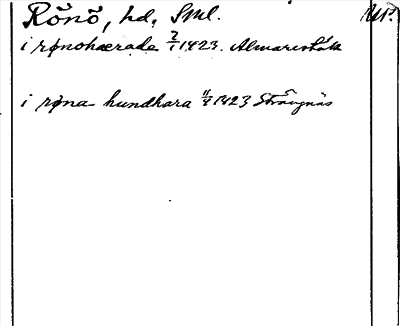 Rönö, hd, Sml.
i rønohærade 2/1 1423. Almarestäk
i røna hundhara 11/4 1423 Strängnäs